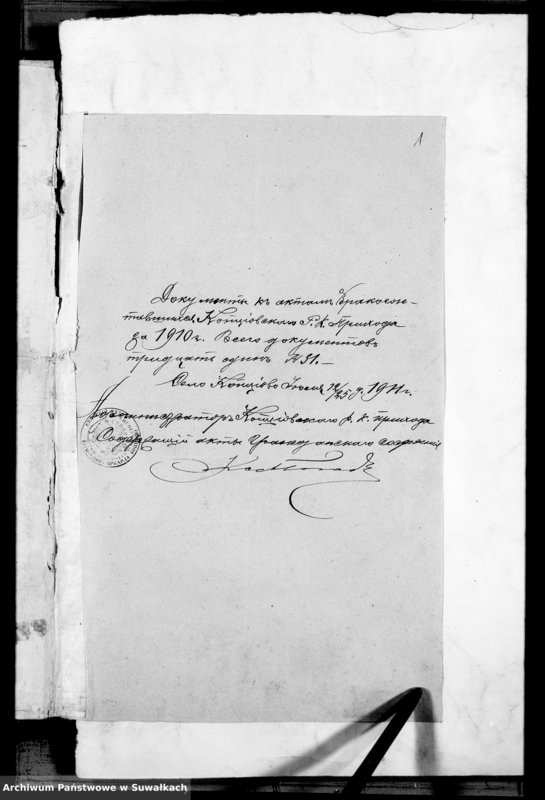 1
Документы къ актамъ бракосоче-
тавшихся Копціовскаго Р. К. Прихода
за 1910 г. Всего документовъ
тридцать одинъ № 31. —
Село Копціово Іюля 12/25 д. 1911 г.
Администраторъ Копціовскаго Р. К. прихода
Содержащій акты Гражданскаго состоянія
Archiwum Państwowe w Suwałkach